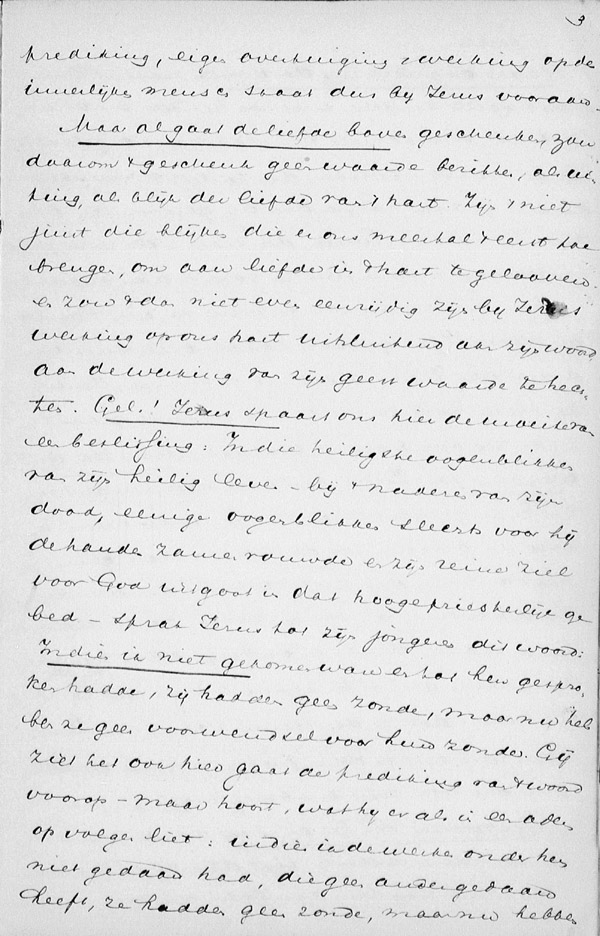 3
prediking, eigen overtuiging, werking op de
innerlijke mensch staat dus by Jezus vooraan.
Maar al gaat de liefde boven geschenken, zou
daarom t geschenk geen waarde bezitten, als ui-
ting, als blijk der liefde van t hart. Zijn t niet
juist die blijken die er ons meestal t eerst toe
brengen, om aan liefde in t hart te gelooven.
en zou t dan niet even eenzijdig zijn by Jezus
werking op ons hart uitsluitend aan zijn woord
aan de werking van zijn geest waarde te hech-
ten. Gel.! Jezus spaart ons hier de moeite van
een beslissing: In die heiligste oogenblikken
van zijn heilig leven - bij t naderen van zijn
dood, eenige oogenblikken slechts voor hij
de handen zamenvouwde en zijn reine ziel
voor God uitgoot in dat hoogepriesterlijk ge
bed - sprak Jezus tot zijn jongeren dit woord:
Indien ik niet gekomen ware en tot hen gespro-
ken hadde, zij hadden geen zonde, maar nu heb
ben ze geen voorwendsel voor hun zonde. Gij
ziet het ook hier gaat de prediking van t woord
voorop - maar hoort, wat hy er als in een adem
op volgen liet: indien ik de werken onder hen
niet gedaan had, die geen ander gedaan
heeft, ze hadden geen zonde, maar nu hebben